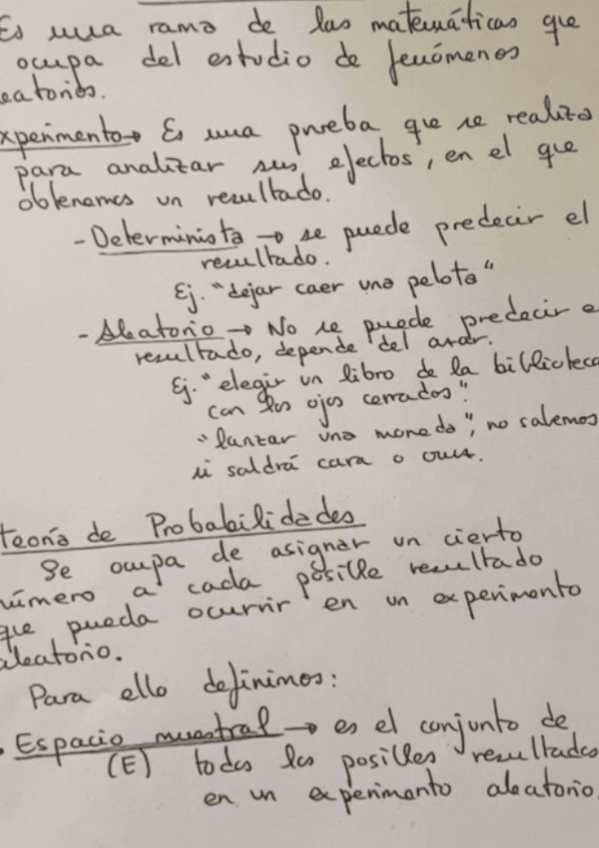 Es una rama de las matemáticas que
ocupa del estudio de fenómenos
eatorios.
xperimento → Es una prueba que se realiza
para analizar sus efectos, en el que
obtenemos un resultado.
- Determinista → se puede predecir el
resultado.
Ej. "dejar caer una pelota"
- Aleatorio → No se puede predecir e
resultado, depende del azar.
Ej. "elegir un libro de la biblioteca
con los ojos cerrados".
"lanzar una moneda", no sabemos
si saldrá cara o cruz.
teoría de Probabilidades
Se ocupa de asignar un cierto
número a cada posible resultado
que pueda ocurrir en un experimento
aleatorio.
Para ello definimos:
. Espacio muestral → es el conjunto de
(E) todos los posibles resultados
en un experimento aleatorio.